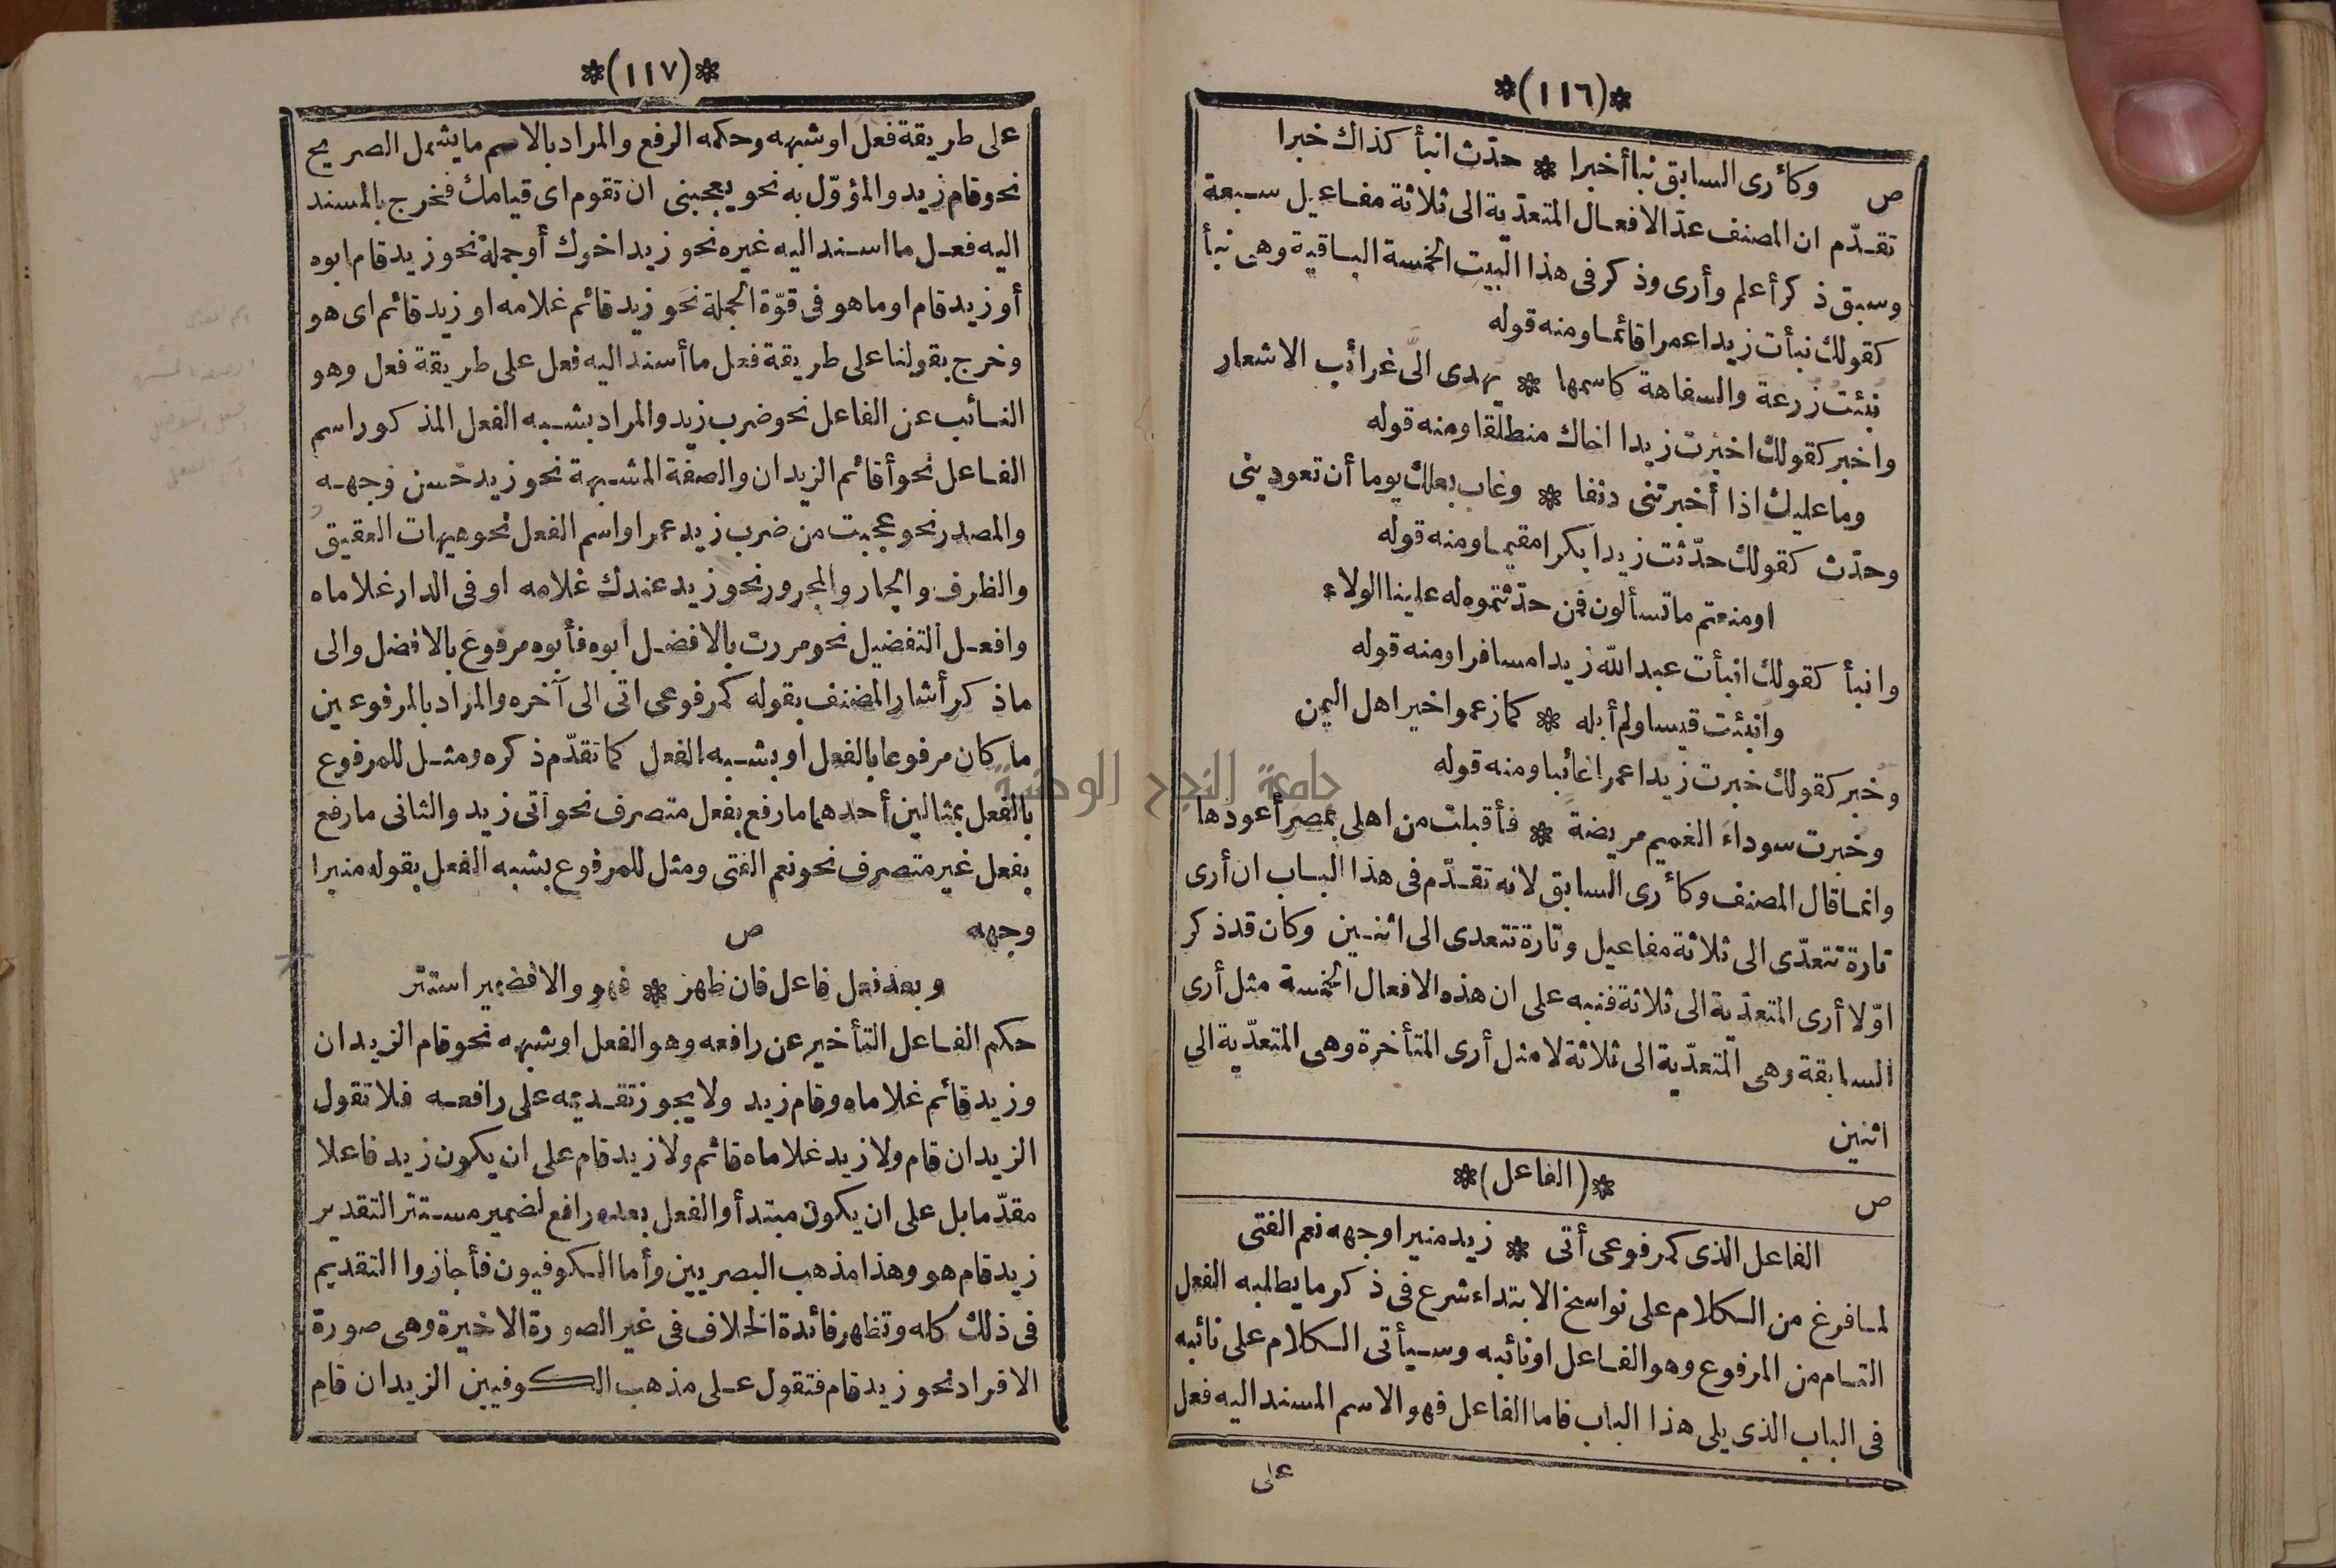 *(١١٦)*
ص وكأرى السابق نبا أخبرا * حدّث انبأ كذاك خبرا
تقدّم ان المصنف عدّ الافعال المتعدّية الى ثلاثة مفاعيل سبعة
وسبق ذكر أعلم وأرى وذكر فى هذا البيت الخمسة الباقية وهى نبأ
كقولك نبأت زيدا عمرا قائما ومنه قوله
نبئت زرعة والسفاهة كاسمها * يهدى الىّ غرائب الاشعار
واخبر كقولك اخبرت زيدا اخاك منطلقا ومنه قوله
وما عليك اذا أخبرتنى دنفا * وغاب بعلك يوما أن تعودينى
وحدّث كقولك حدّثت زيدا بكرا مقيما ومنه قوله
او منعتم ما تسألون فمن حدّثتموه له علينا الولاء
وانبأ كقولك انبأت عبد الله زيدا مسافرا ومنه قوله
وانبئت قيسا ولم أبله * كما زعموا خير اهل اليمن
وخبر كقولك خبرت زيدا عمرا غائبا ومنه قوله
وخبرت سوداء الغميم مريضة * فأقبلت من اهلى بمصر أعودها
وانما قال المصنف وكأرى السابق لانه تقدّم فى هذا الباب ان أرى
تارة تتعدّى الى ثلاثة مفاعيل وتارة تتعدى الى اثنين وكان قد ذكر
اوّلا أرى المتعدّية الى ثلاثة فنبه على ان هذه الافعال الخمسة مثل أرى
السابقة وهى المتعدّية الى ثلاثة لا مثل أرى المتأخرة وهى المتعدّية الى
اثنين
*(الفاعل)*
ص
الفاعل الذى كمرفوعى أتى * زيد منيرا وجهه نعم الفتى
لما فرغ من الكلام على نواسخ الابتداء شرع فى ذكر ما يطلبه الفعل
التام من المرفوع وهو الفاعل او نائبه وسيأتى الكلام على نائبه
فى الباب الذى يلى هذا الباب فاما الفاعل فهو الاسم المسند اليه فعل
على
*(١١٧)*
على طريقة فعل او شبهه وحكمه الرفع والمراد بالاسم ما يشمل الصريح
نحو قام زيد والمؤوّل به نحو يعجبنى ان تقوم اى قيامك فخرج بالمسند
اليه فعل ما اسند اليه غيره نحو زيد اخوك أو جملة نحو زيد قام ابوه
أو زيد قام او ما هو فى قوّة الجملة نحو زيد قائم غلامه او زيد قائم اى هو
وخرج بقولنا على طريقة فعل ما أسند اليه فعل على طريقة فعل وهو
النائب عن الفاعل نحو ضرب زيد والمراد بشبه الفعل المذكور اسم
الفاعل نحو أقائم الزيدان والصفة المشبهة نحو زيد حسن وجهه
والمصدر نحو عجبت من ضرب زيد عمرا واسم الفعل نحو هيهات العقيق
والظرف والجار والمجرور نحو زيد عندك غلامه او فى الدار غلاماه
وافعل التفضيل نحو مررت بالافضل ابوه فأبوه مرفوع بالافضل والى
ما ذكر أشار المصنف بقوله كمرفوعى اتى الى آخره والمراد بالمرفوعين
ما كان مرفوعا بالفعل او بشبه الفعل كما تقدّم ذكره ومثل للمرفوع
بالفعل بمثالين أحدهما ما رفع بفعل متصرف نحو أتى زيد والثانى ما رفع
بفعل غير متصرف نحو نعم الفتى ومثل للمرفوع بشبه الفعل بقوله منيرا
وجهه ص
وبعد فعل فاعل فان ظهر * فهو والا فضمير استتر
حكم الفاعل التأخير عن رافعه وهو الفعل او شبهه نحو قام الزيدان
وزيد قائم غلاماه وقام زيد ولا يجوز تقديمه على رافعه فلا تقول
الزيدان قام ولا زيد غلاماه قائم ولا زيد قام على ان يكون زيد فاعلا
مقدّما بل على ان يكون مبتدأ والفعل بعده رافع لضمير مستتر التقدير
زيد قام هو وهذا مذهب البصريين وأما الكوفيون فأجازوا التقديم
فى ذلك كله وتظهر فائدة الخلاف فى غير الصورة الاخيرة وهى صورة
الافراد نحو زيد قام فتقول على مذهب الكوفيين الزيدان قام
جامعة النجاح الوطنية